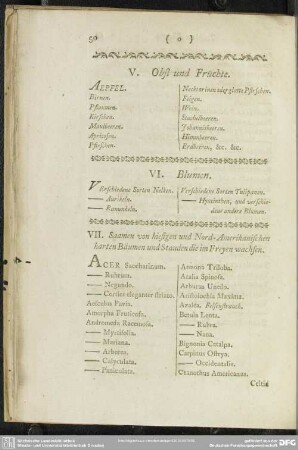 50 ( o )
V. Obst und Früchte.
AEPFEL.
Birnen.
Pflaumen.
Kirschen.
Maulbeeren.
Apricosen.
Pfirschen.
Nectorinen oder glatte Pfirschen.
Feigen.
Wein.
Stachelbeeren.
Johannisbeeren.
Himmbeeren.
Erdbeeren, &c. &c.
VI. Blumen.
Verschiedene Sorten Nelken.
— Aurikeln.
— Ranunkeln.
Verschiedene Sorten Tulipanen.
— Hyacinthen, und verschie-
dene andere Blumen.
VII. Saamen von hiesigen und Nord-Amerikanischen
harten Bäumen und Stauden die im Freyen wachsen.
ACER Saccharinum.
— Rubrum.
— Negundo.
— Cortice eleganter striato.
Aesculus Pavia.
Amorpha Fruticosa.
Andromeda Racemosa.
— Mariana.
— Arborea.
— Calyculata.
— Paniculata.
Annona Triloba.
Aralia Spinosa.
Arbutus Unedo.
Aristolochia Maxima.
Azalea.
Betula Lenta.
— Rubra.
— Nana.
Bignonia Catalpa.
Carpinus Ostrya.
— Occidentalis.
Ceanothus Americanus.
Celtis